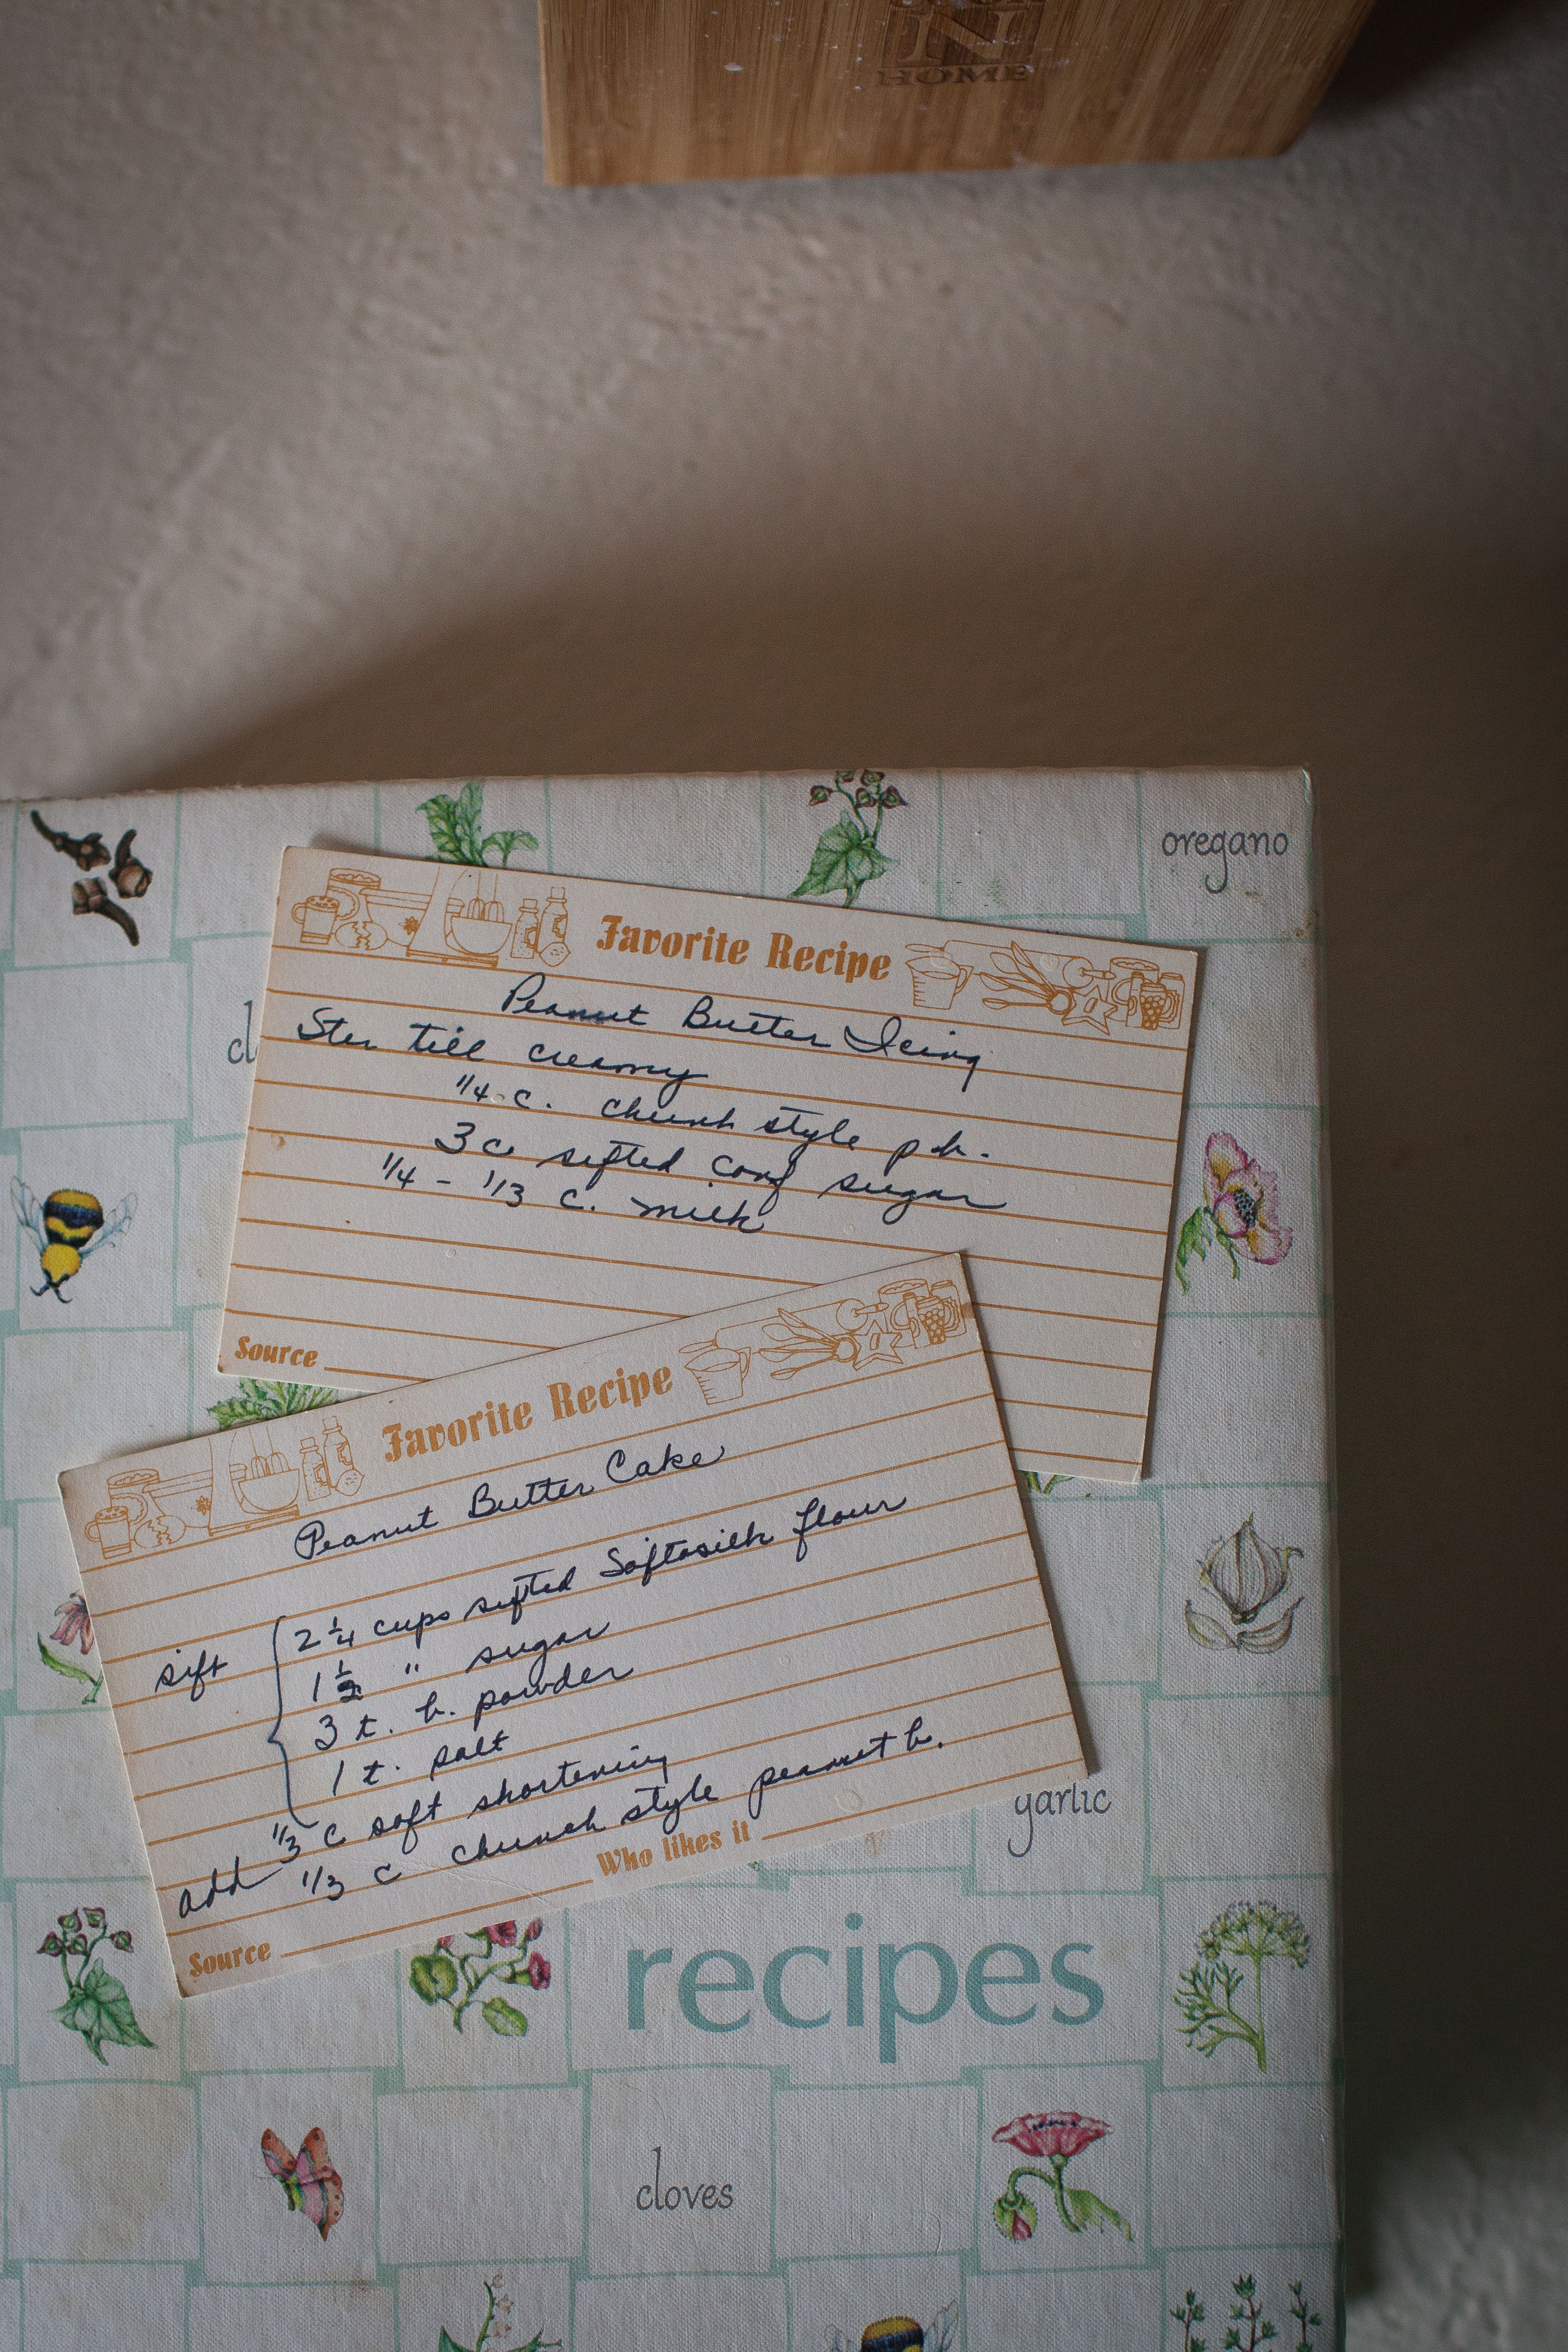 N
HOME
oregano
cl
Favorite Recipe
Peanut Butter Icing
Stir till creamy
1/4 c. chunk style p.b.
3 c sifted conf sugar
1/4 - 1/3 c. milk
Source
Favorite Recipe
Peanut Butter Cake
sift
2 1/4 cups sifted Softasilk flour
1 1/2 " sugar
3 t. b. powder
1 t. salt
add
1/3 c soft shortening
1/3 c chunch style peanut b.
Who likes it
Source
garlic
recipes
cloves